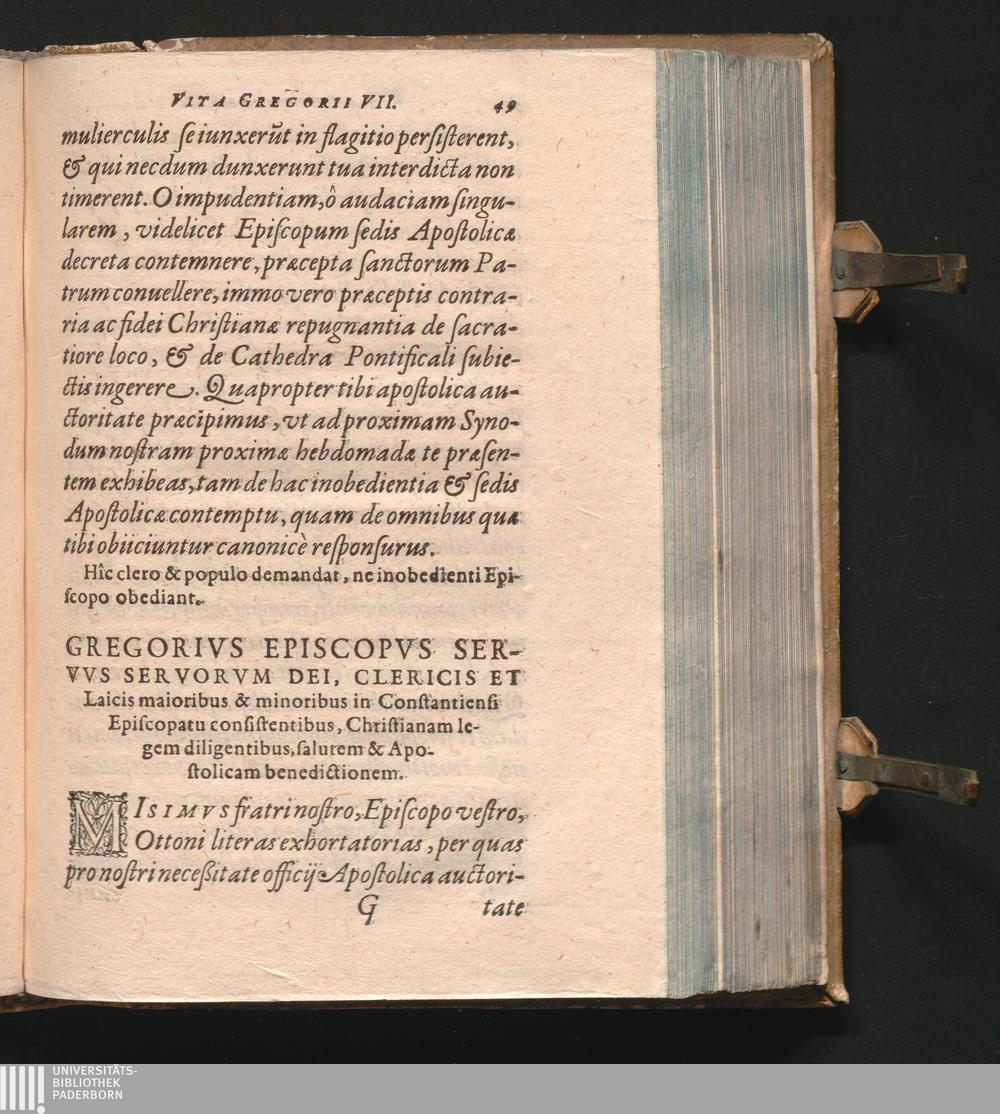 VITA GREGORII VII. 49
mulierculis se iunxerũt in flagitio persisterent,
& qui necdum dunxerunt tua interdicta non
timerent. O impudentiam, ô audaciam singu-
larem, videlicet Episcopum sedis Apostolicæ
decreta contemnere, præcepta sanctorum Pa-
trum conuellere, immo vero præceptis contra-
ria ac fidei Christianæ repugnantia de sacra-
tiore loco, & de Cathedra Pontificali subie-
ctis ingerere. Quapropter tibi apostolica au-
ctoritate præcipimus, vt ad proximam Syno-
dum nostram proximæ hebdomadæ te præsen-
tem exhibeas, tam de hac inobedientia & sedis
Apostolicæ contemptu, quam de omnibus quæ
tibi obiiciuntur canonicè responsurus.
Hîc clero & populo demandat, ne inobedienti Epi-
scopo obediant.
GREGORIVS EPISCOPVS SER-
VVS SERVORVM DEI, CLERICIS ET
Laicis maioribus & minoribus in Constantiensi
Episcopatu consistentibus, Christianam le-
gem diligentibus, salutem & Apo-
stolicam benedictionem.
MISIMVS fratri nostro, Episcopo vestro,
Ottoni literas exhortatorias, per quas
pro nostri necessitate officij Apostolica auctori-
G tate
UNIVERSITÄTS-
BIBLIOTHEK
PADERBORN